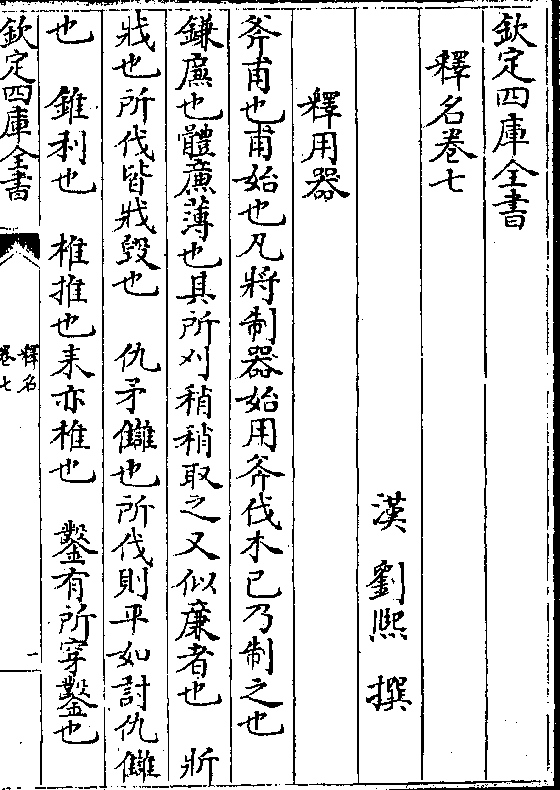 欽定四庫全書
釋名卷七
漢 劉熙 撰
釋用器
斧甫也甫始也凡將制器始用斧伐木已乃制之也
鎌廉也體廉薄也其所刈稍稍取之又似廉者也 斨
戕也所伐皆戕毁也 仇矛讎也所伐則平如討仇讎
也 錐利也 椎推也耒亦椎也 鑿有所穿鑿也
欽定四庫全書
釋名
卷七
一